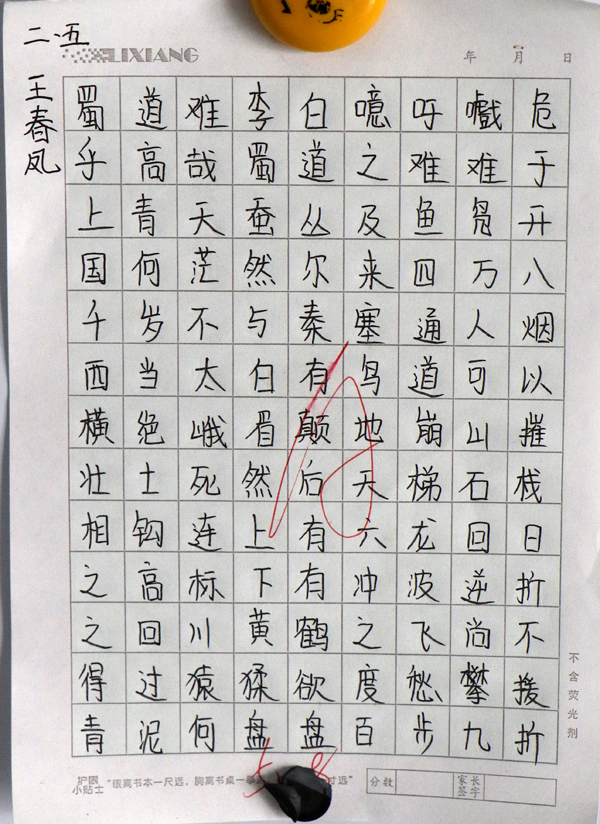 二.五
LIXIANG
年 月 日
王春凤
蜀道难李白噫吁嚱危
乎高哉蜀道之难难于
上青天蚕丛及鱼凫开
国何茫然尔来四万八
千岁不与秦塞通人烟
西当太白有鸟道可以
横绝峨眉颠地崩山摧
壮士死然后天梯石栈
相钩连上有六龙回日
之高标下有冲波逆折
之回川黄鹤之飞尚不
得过猿猱欲度愁攀援
青泥何盘盘百步九折
不含荧光剂
护眼小贴士 "眼离书本一尺远，胸离书桌一拳 寸远"
分数
家长签字